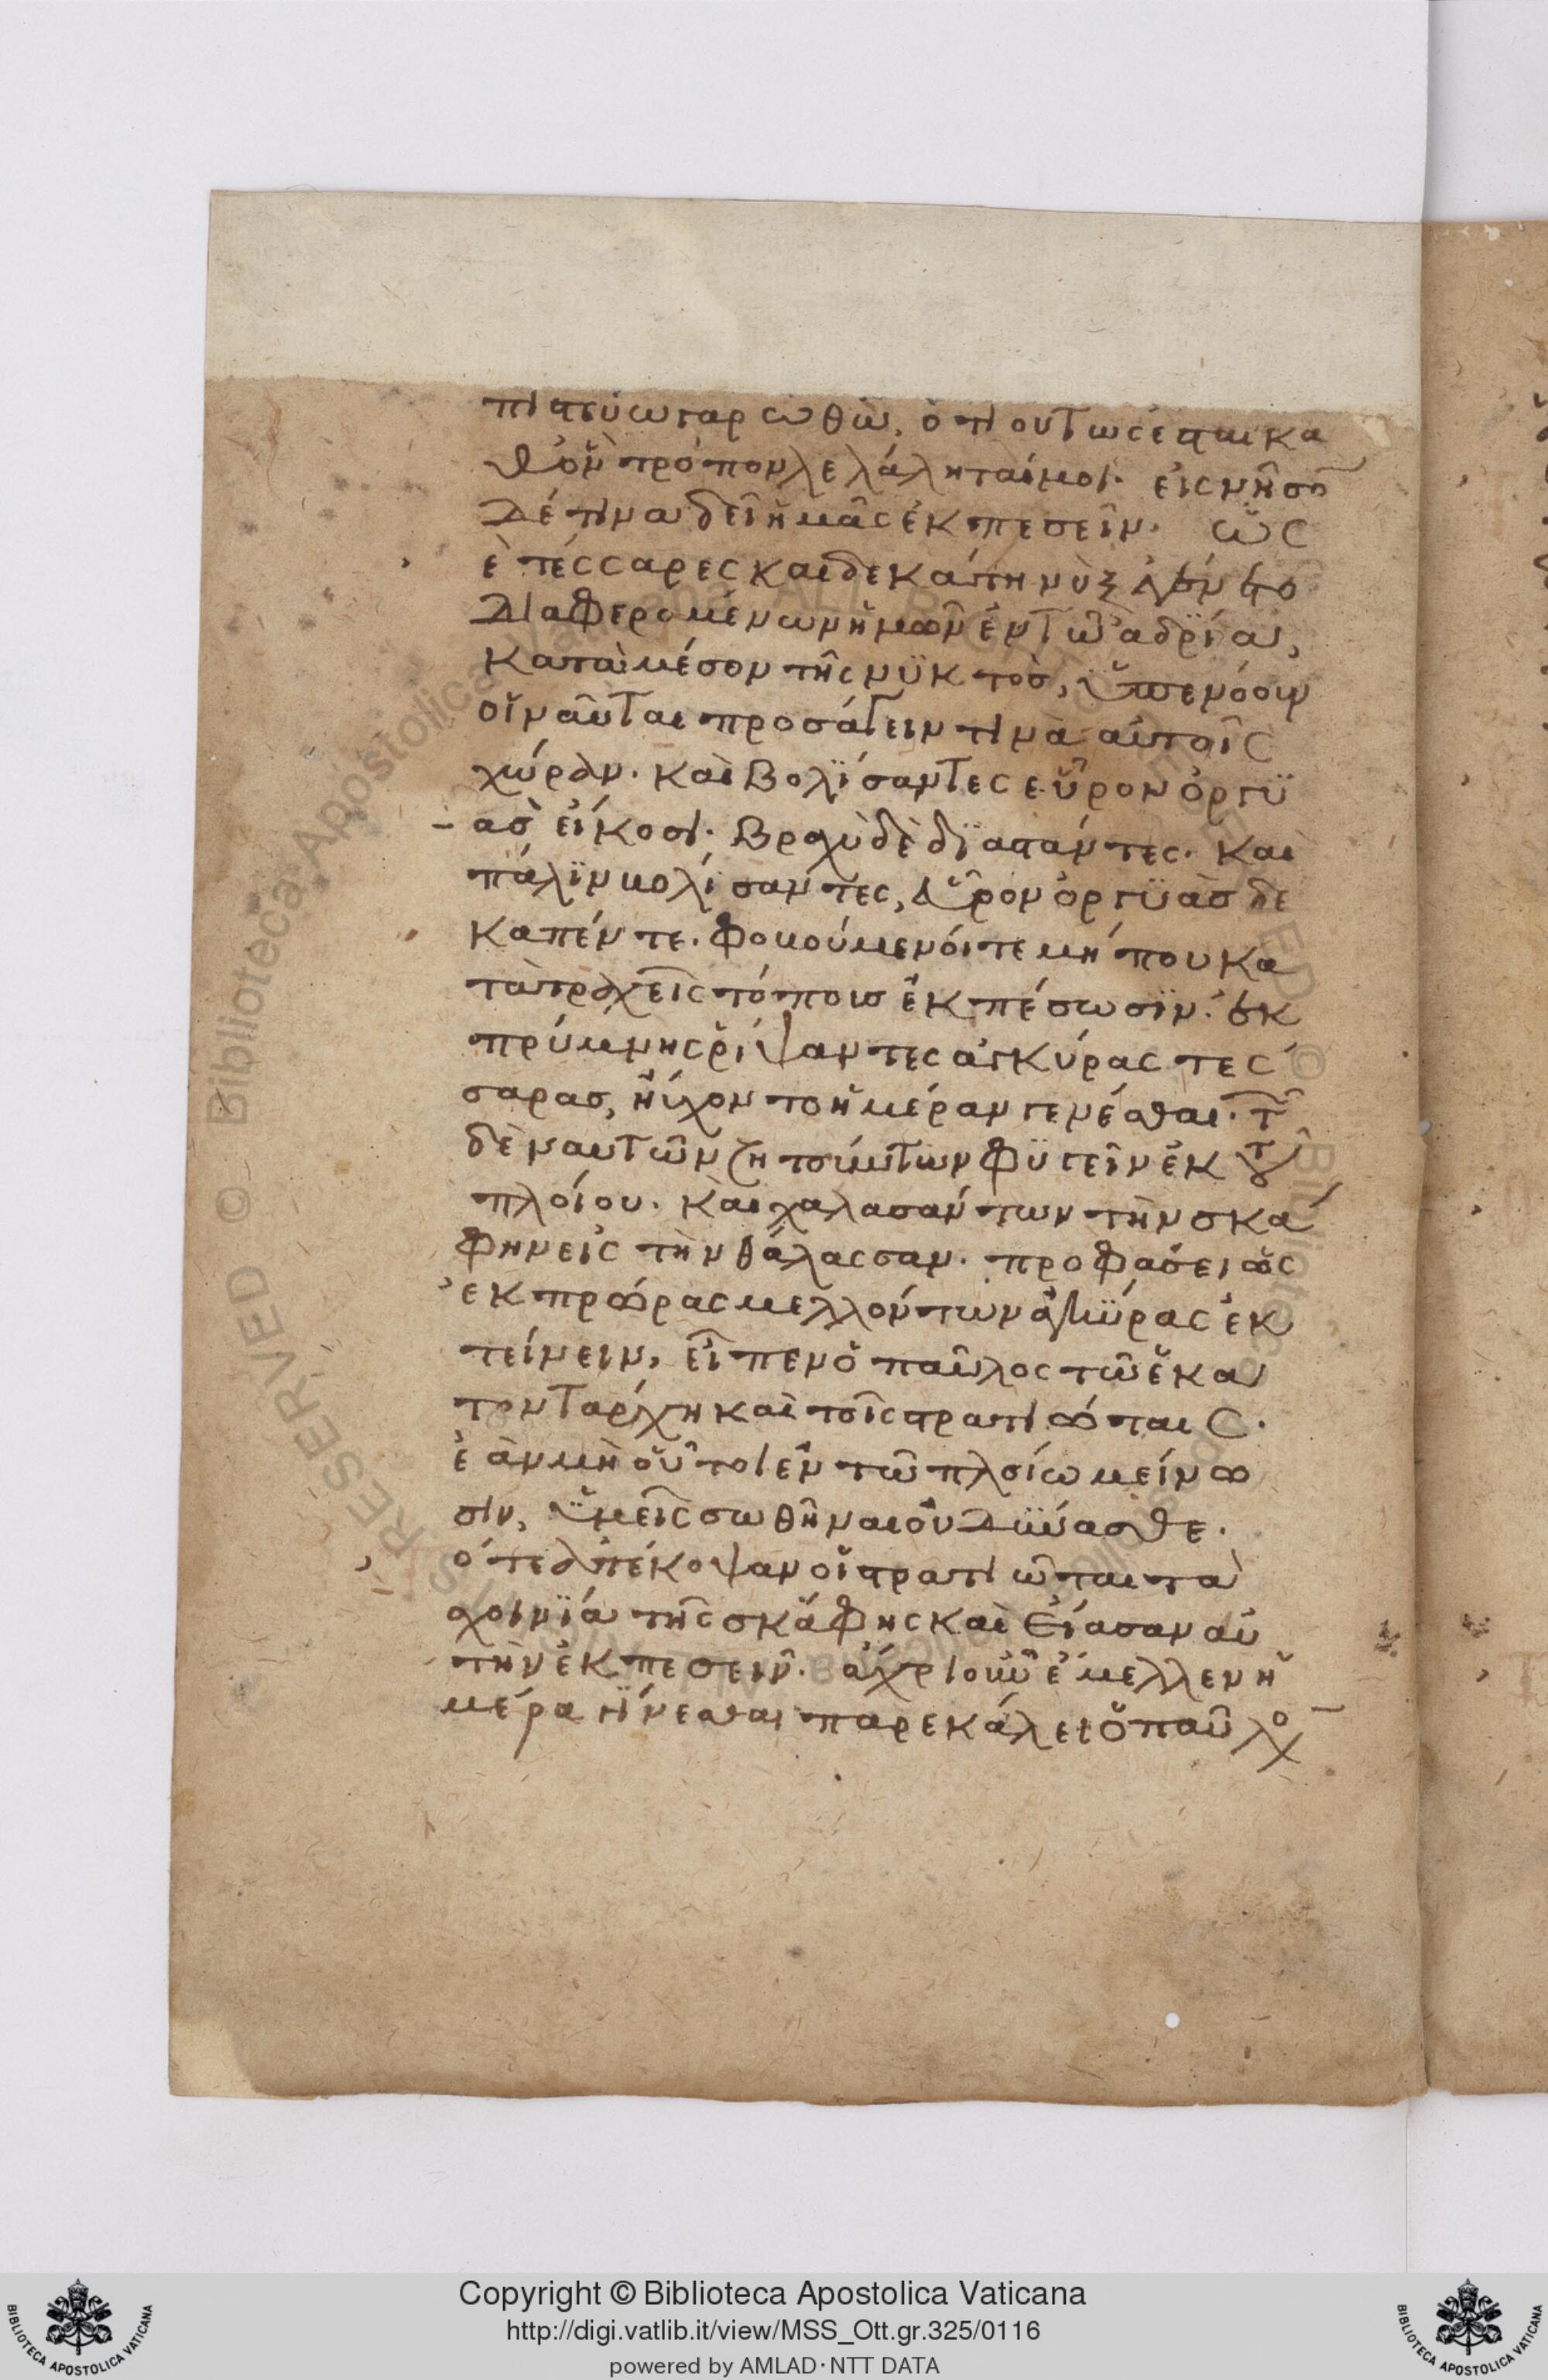 πιστεύω γαρ τω θῶ, ὅτι ουτως έσται κα
θ ὃν τρόπον λελάληταί μοι. εἰς νῆσον
δέ τινα δεῖ ἡμᾶς ἐκπεσεῖν. ὡς
ὲ τέσσαρες και δεκάτη νὺξ ἐγένετο
διαφερομένων ἡμῶν ἐν τῶ ἀδρΐα,
κατὰ μέσον τῆς νϋκτὸς, ὑπενόουν
οἱ ναῦται προσάγειν τινὰ αὐτοῖς
χώραν. καὶ βολΐσαντες εὗρον ὀργϋ
ὰς εἴκοσι. βραχὺ δὲ δϊαστάντες. καὶ
πάλϊν βολίσαντες, εὗρον ὀργϋὰς δε
καπέντε. φοβούμενοί τε μή που κα
τὰ τραχεῖς τόπους ἐκπέσωσϊν. ἐκ
πρύμνης ῥίψαντες ἀγκύρας τέσ
σαρας, ηὔχοντο ἡμέραν γενέσθαι. τῶν
δὲ ναυτῶν ζητούντων φϋγεῖν ἐκ τοῦ
πλοίου. καὶ χαλασάντων τὴν σκά
φην εἰς τὴν θάλασσαν. προφάσει ὡς
ἐκ πρώρας μελλόντων ἀγκϋρας ἐκ
τείνειν, εἶπεν ὁ παῦλος τῶ ἑκα
τοντάρχη καὶ τοῖς στρατιώταις.
ἐὰν μὴ οὗτοι ἐν τῶ πλοίω μείνω
σιν, ὑμεῖς σωθῆναι οὐ δΰνασθε.
ότε ἀπέκοψαν οἱ στρατιῶται τὰ
σχοινϊά τῆς σκάφης καὶ εἴασαν αὐ
τὴν ἐκπεσεῖν. ἄχρι οὗ ἔμελλεν ἡ
μέρα γίνεσθαι παρεκάλει ὁ παῦλος
Copyright © Biblioteca Apostolica Vaticana
http://digi.vatlib.it/view/MSS_Ott.gr.325/0116
powered by AMLAD·NTT DATA